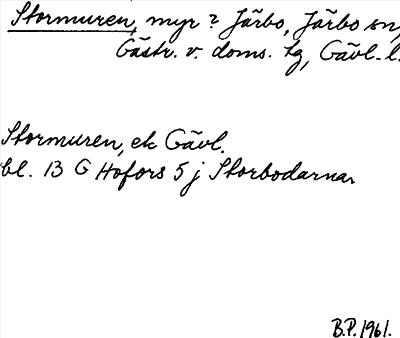 Stormuren, myr ? Järbo, Järbo sn,
Gästr. v. doms. tg, Gävl. l.
Stormuren, ek Gävl.
bl. 13 G Hofors 5 j Storbodarna
B.P. 1961.